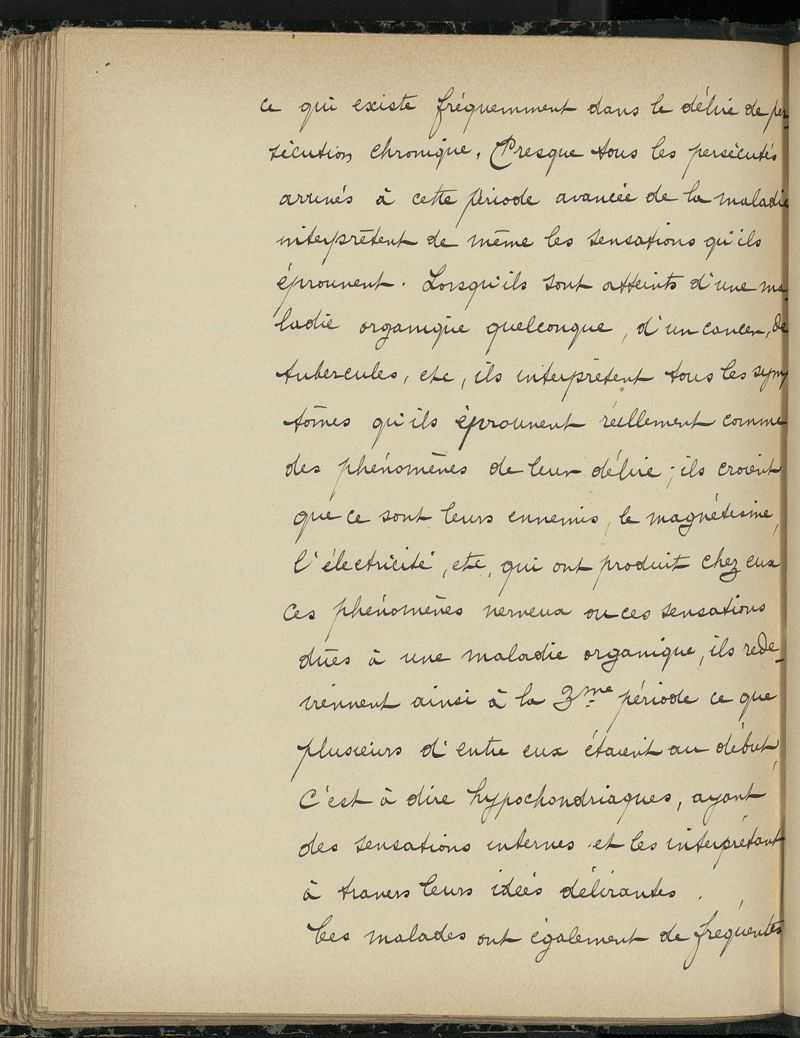 ce qui existe fréquemment dans le délire de per-
sécution chronique. Presque tous les persécutés
arrivés à cette période avancée de la maladie
interprètent de même les sensations qu'ils
éprouvent. Lorsqu'ils sont atteints d'une ma-
ladie organique quelconque, d'un cancer, de
tubercules, etc, ils interprètent tous les symp
tômes qu'ils éprouvent réellement comme
des phénomènes de leur délire ; ils croient
que ce sont leurs ennemis, le magnétisme,
l'électricité, etc, qui ont produit chez eux
ces phénomènes nerveux ou ces sensations
dûes à une maladie organique, ils rede-
viennent ainsi à la 3me période ce que
plusieurs d'entre eux étaient au début,
c'est à dire hypochondriaques, ayant
des sensations internes et les interprétant
à travers leurs idées délirantes.
Ces malades ont également de fréquentes